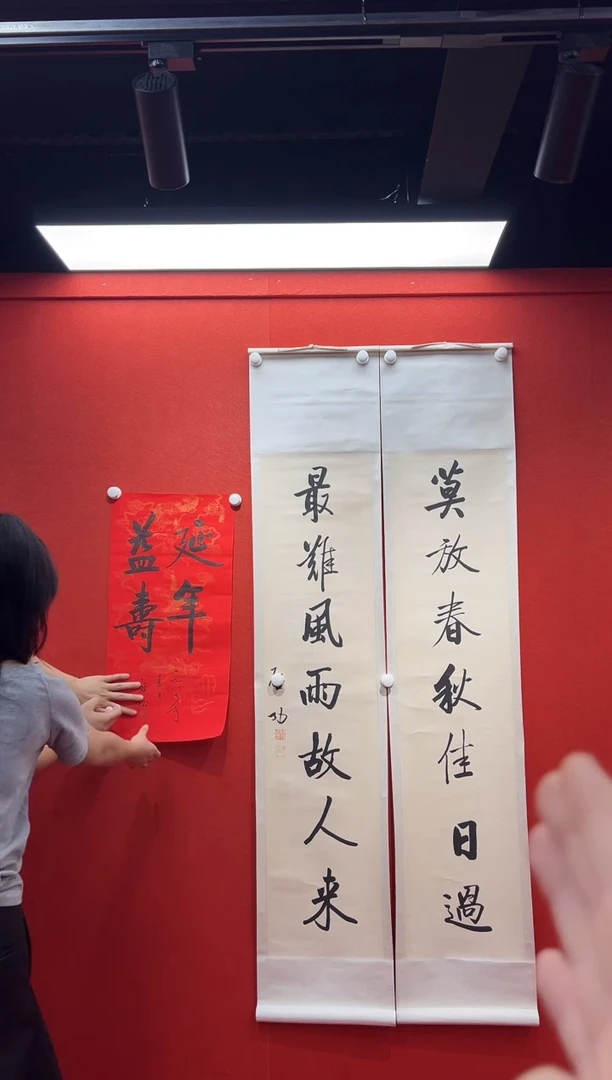 莫放春秋佳日過
最難風雨故人来
启功
延年
益壽